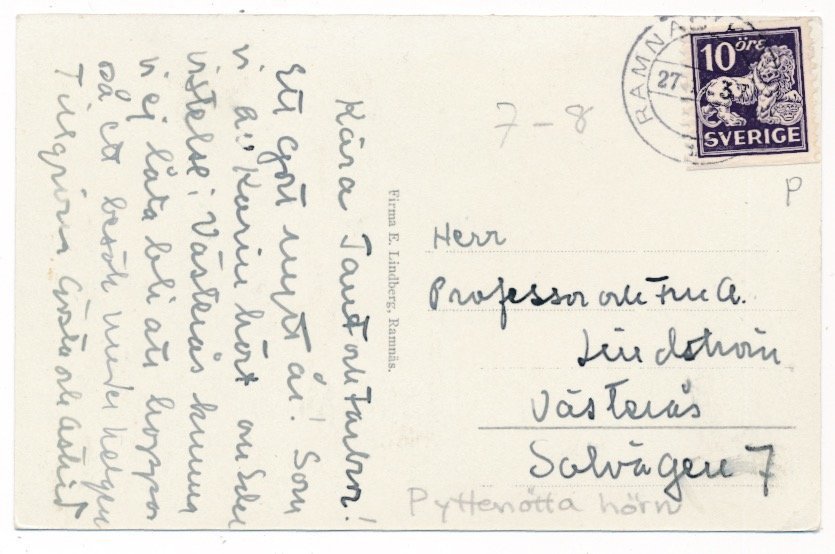 Kära Tant och Farbror!
Ett gott nytt år! Som
vi av Karin hört om Eder
vistelse i Västerås kunna
vi ej låta bli att hoppas
på ett besök under helgen
Tillgivna Gösta och Astrid
Firma E. Lindberg, Ramnäs.
RAMNÄS
27
3
10 öre
SVERIGE
7-8
P
Herr
Professor och Fru A.
Lindström
Västerås
Solvägen 7
Pyttenötta hörn